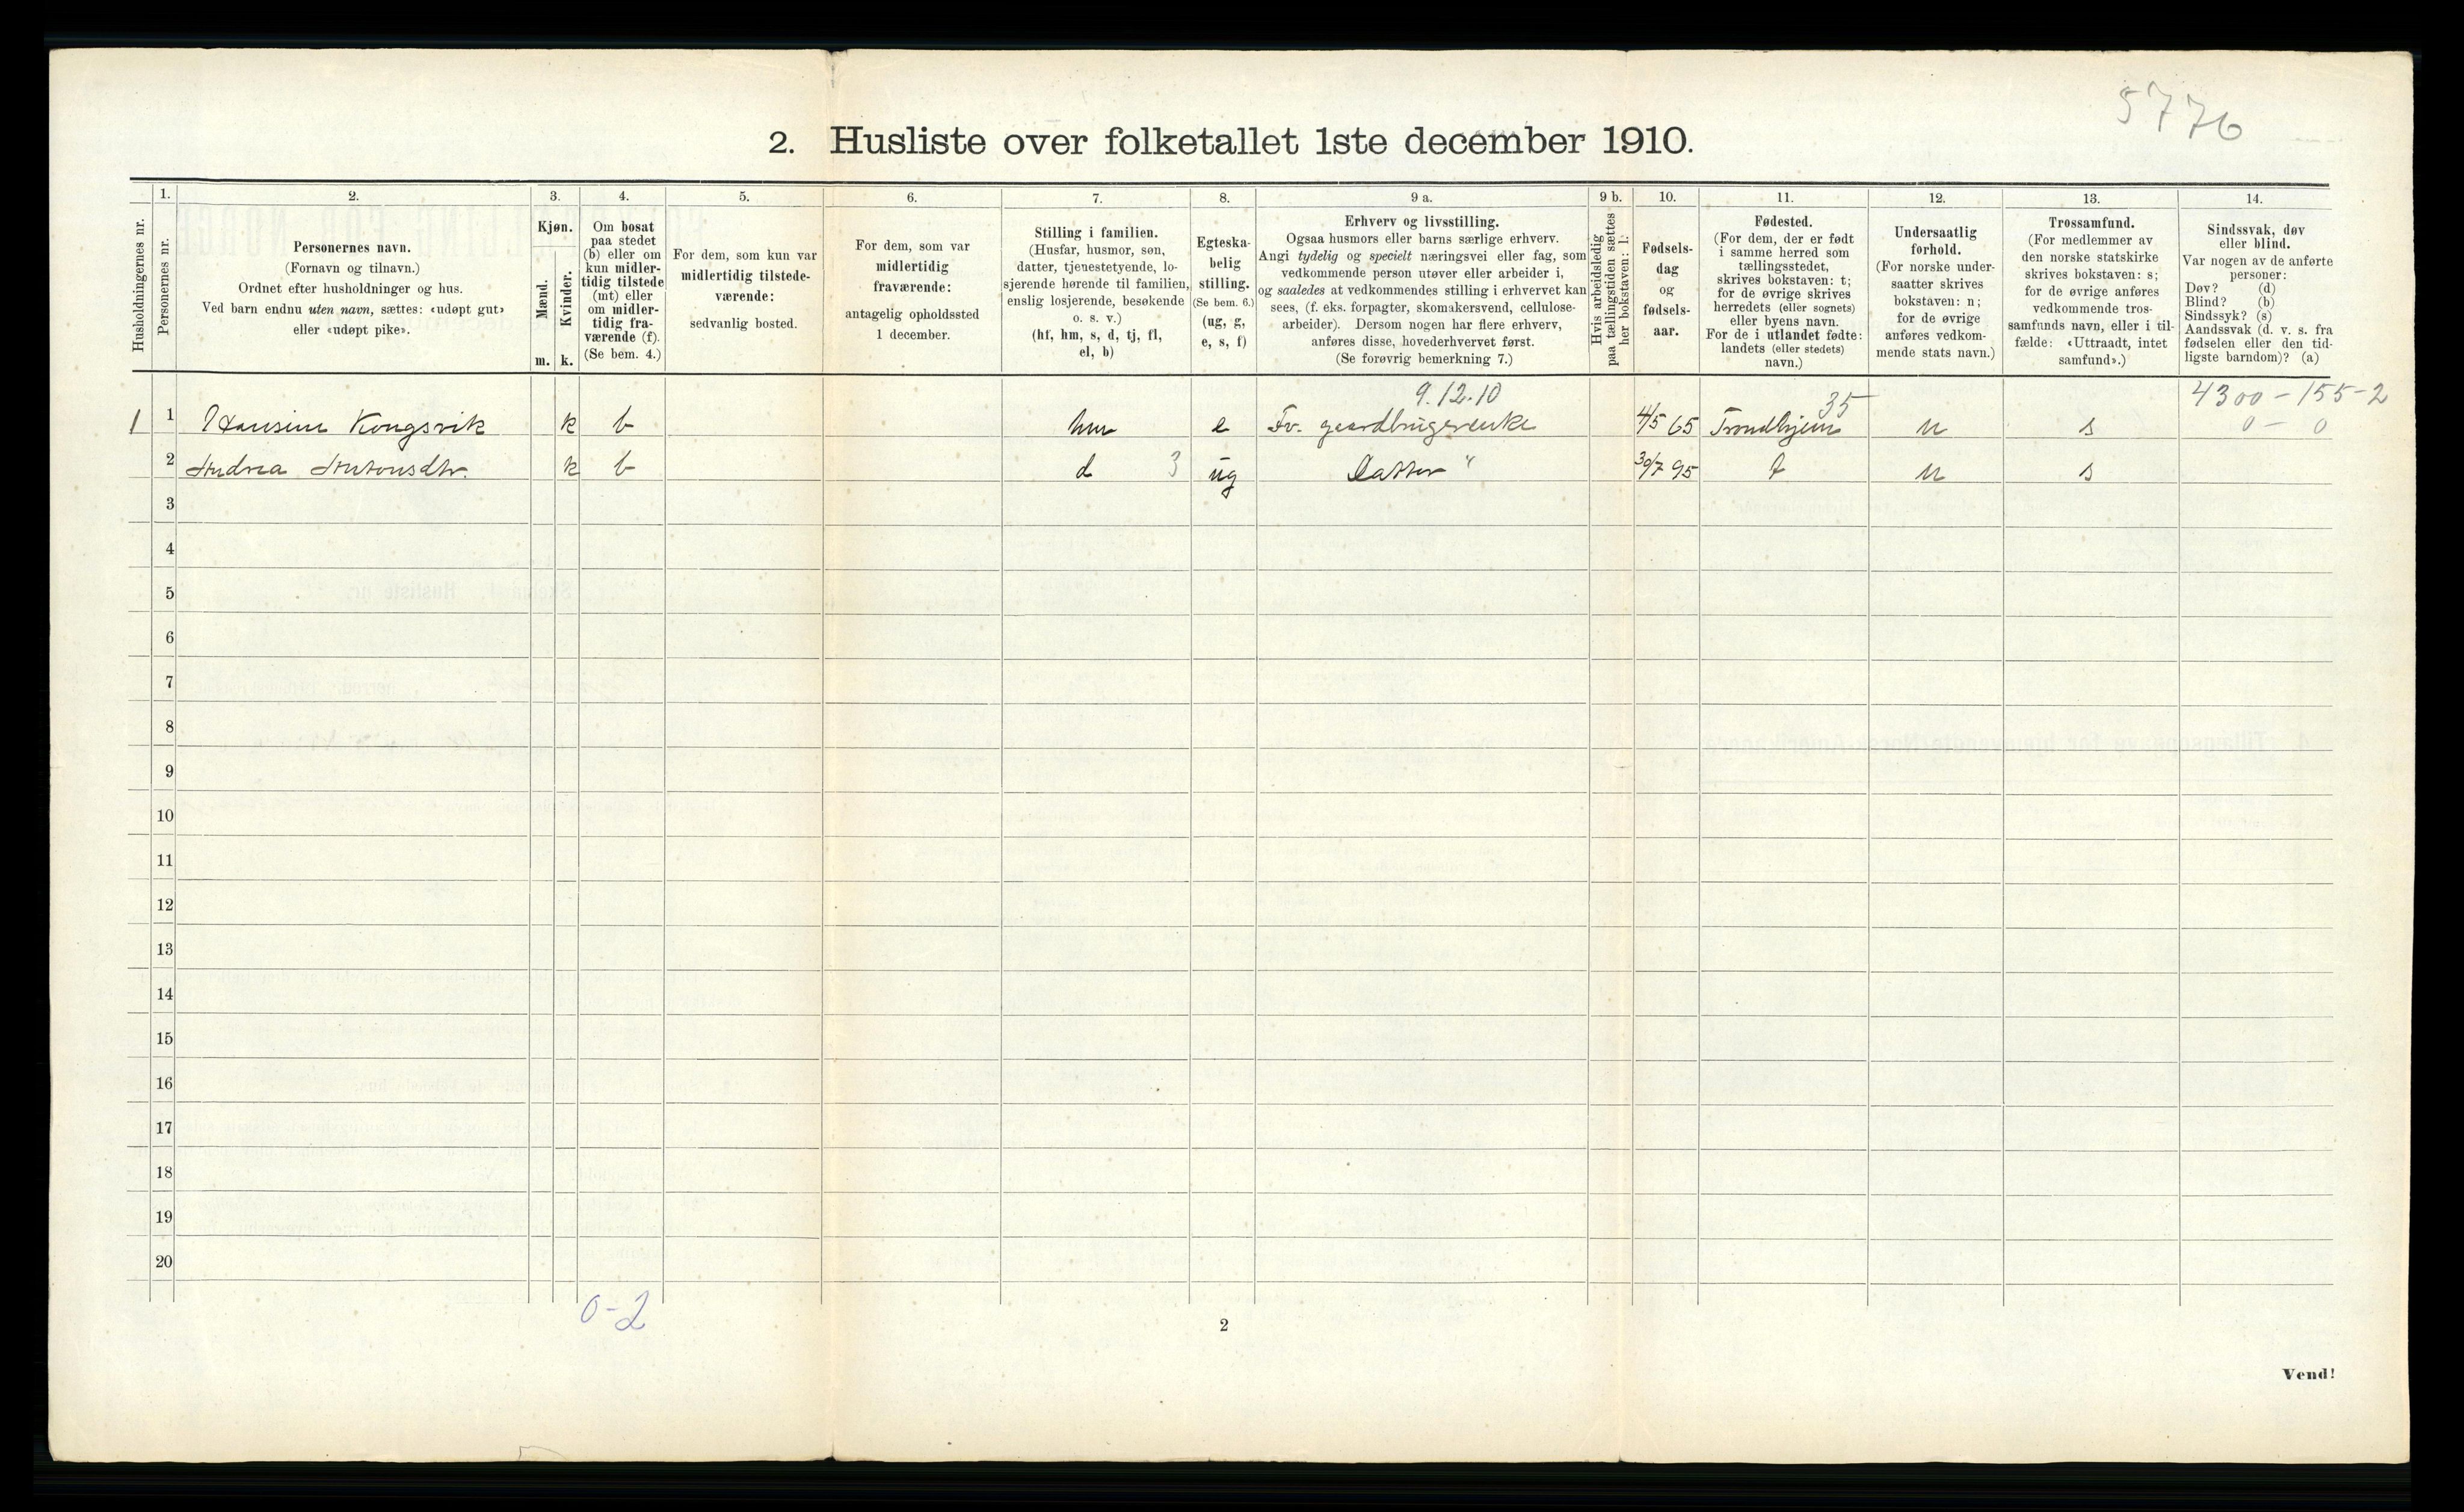 5776
2. Husliste over folketallet 1ste december 1910.
Husholdningernes nr.
1.
Personernes nr.
2.
Personernes navn.
(Fornavn og tilnavn.)
Ordnet efter husholdninger og hus.
Ved barn endnu uten navn, sættes: «udøpt gut»
eller «udøpt pike».
3.
Kjøn.
Mænd.
m.
Kvinder.
k.
4.
Om bosat
paa stedet
(b) eller om
kun midler-
tidig tilstede
(mt) eller
om midler-
tidig fra-
værende (f).
(Se bem. 4.)
5.
For dem, som kun var
midlertidig tilstede-
værende:
sedvanlig bosted.
6.
For dem, som var
midlertidig
fraværende:
antagelig opholdssted
1 december.
7.
Stilling i familien.
(Husfar, husmor, søn,
datter, tjenestetyende, lo-
sjerende hørende til familien,
enslig losjerende, besøkende
o. s. v.)
(hf, hm, s, d, tj, fl,
el, b)
8.
Egteska-
belig
stilling.
(Se bem. 6.)
(ug, g,
e, s, f)
9 a.
Erhverv og livsstilling.
Ogsaa husmors eller barns særlige erhverv.
Angi tydelig og specielt næringsvei eller fag, som
vedkommende person utøver eller arbeider i,
og saaledes at vedkommendes stilling i erhvervet kan
sees, (f. eks. forpagter, skomakersvend, cellulose-
arbeider). Dersom nogen har flere erhverv,
anføres disse, hovederhvervet først.
(Se forøvrig bemerkning 7.)
9 b.
Hvis arbeidsledig
paa tællingstiden sættes
her bokstaven: l:
10.
Fødsels-
dag
og
fødsels-
aar.
11.
Fødested.
(For dem, der er født
i samme herred som
tællingsstedet,
skrives bokstaven: t;
for de øvrige skrives
herredets (eller sognets)
eller byens navn.
For de i utlandet fødte:
landets (eller stedets)
navn.)
12.
Undersaatlig
forhold.
(For norske under-
saatter skrives
bokstaven: n;
for de øvrige
anføres vedkom-
mende stats navn.)
13.
Trossamfund.
(For medlemmer av
den norske statskirke
skrives bokstaven: s;
for de øvrige anføres
vedkommende tros-
samfunds navn, eller i til-
fælde: «Uttraadt, intet
samfund».)
14.
Sindssvak, døv
eller blind.
Var nogen av de anførte
personer:
Døv? (d)
Blind? (b)
Sindssyk? (s)
Aandssvak (d. v. s. fra
fødselen eller den tid-
ligste barndom)? (a)
9.12.10 35 4300 – 155 – 2
1 1 Hansine Kongsvik k b hm e Fv. gaardbrugerenke 4/5 65 Trondhjem n s 0 – 0
2 Andrea Antonsdtr. k b d 3 ug Datter " 30/7 95 t n s
3
4
5
6
7
8
9
10
11
12
13
14
15
16
17
18
19
20
0 – 2
2
Vend!